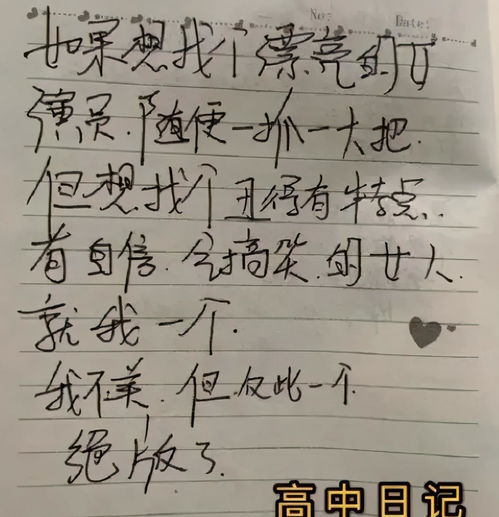 No:
Date:
如果想找个漂亮的女
演员.随便一抓一大把.
但想找个丑得有特点.
有自信.会搞笑.的女人.
就我一个.
我不美.但仅此一个.
绝版了.
高中日记